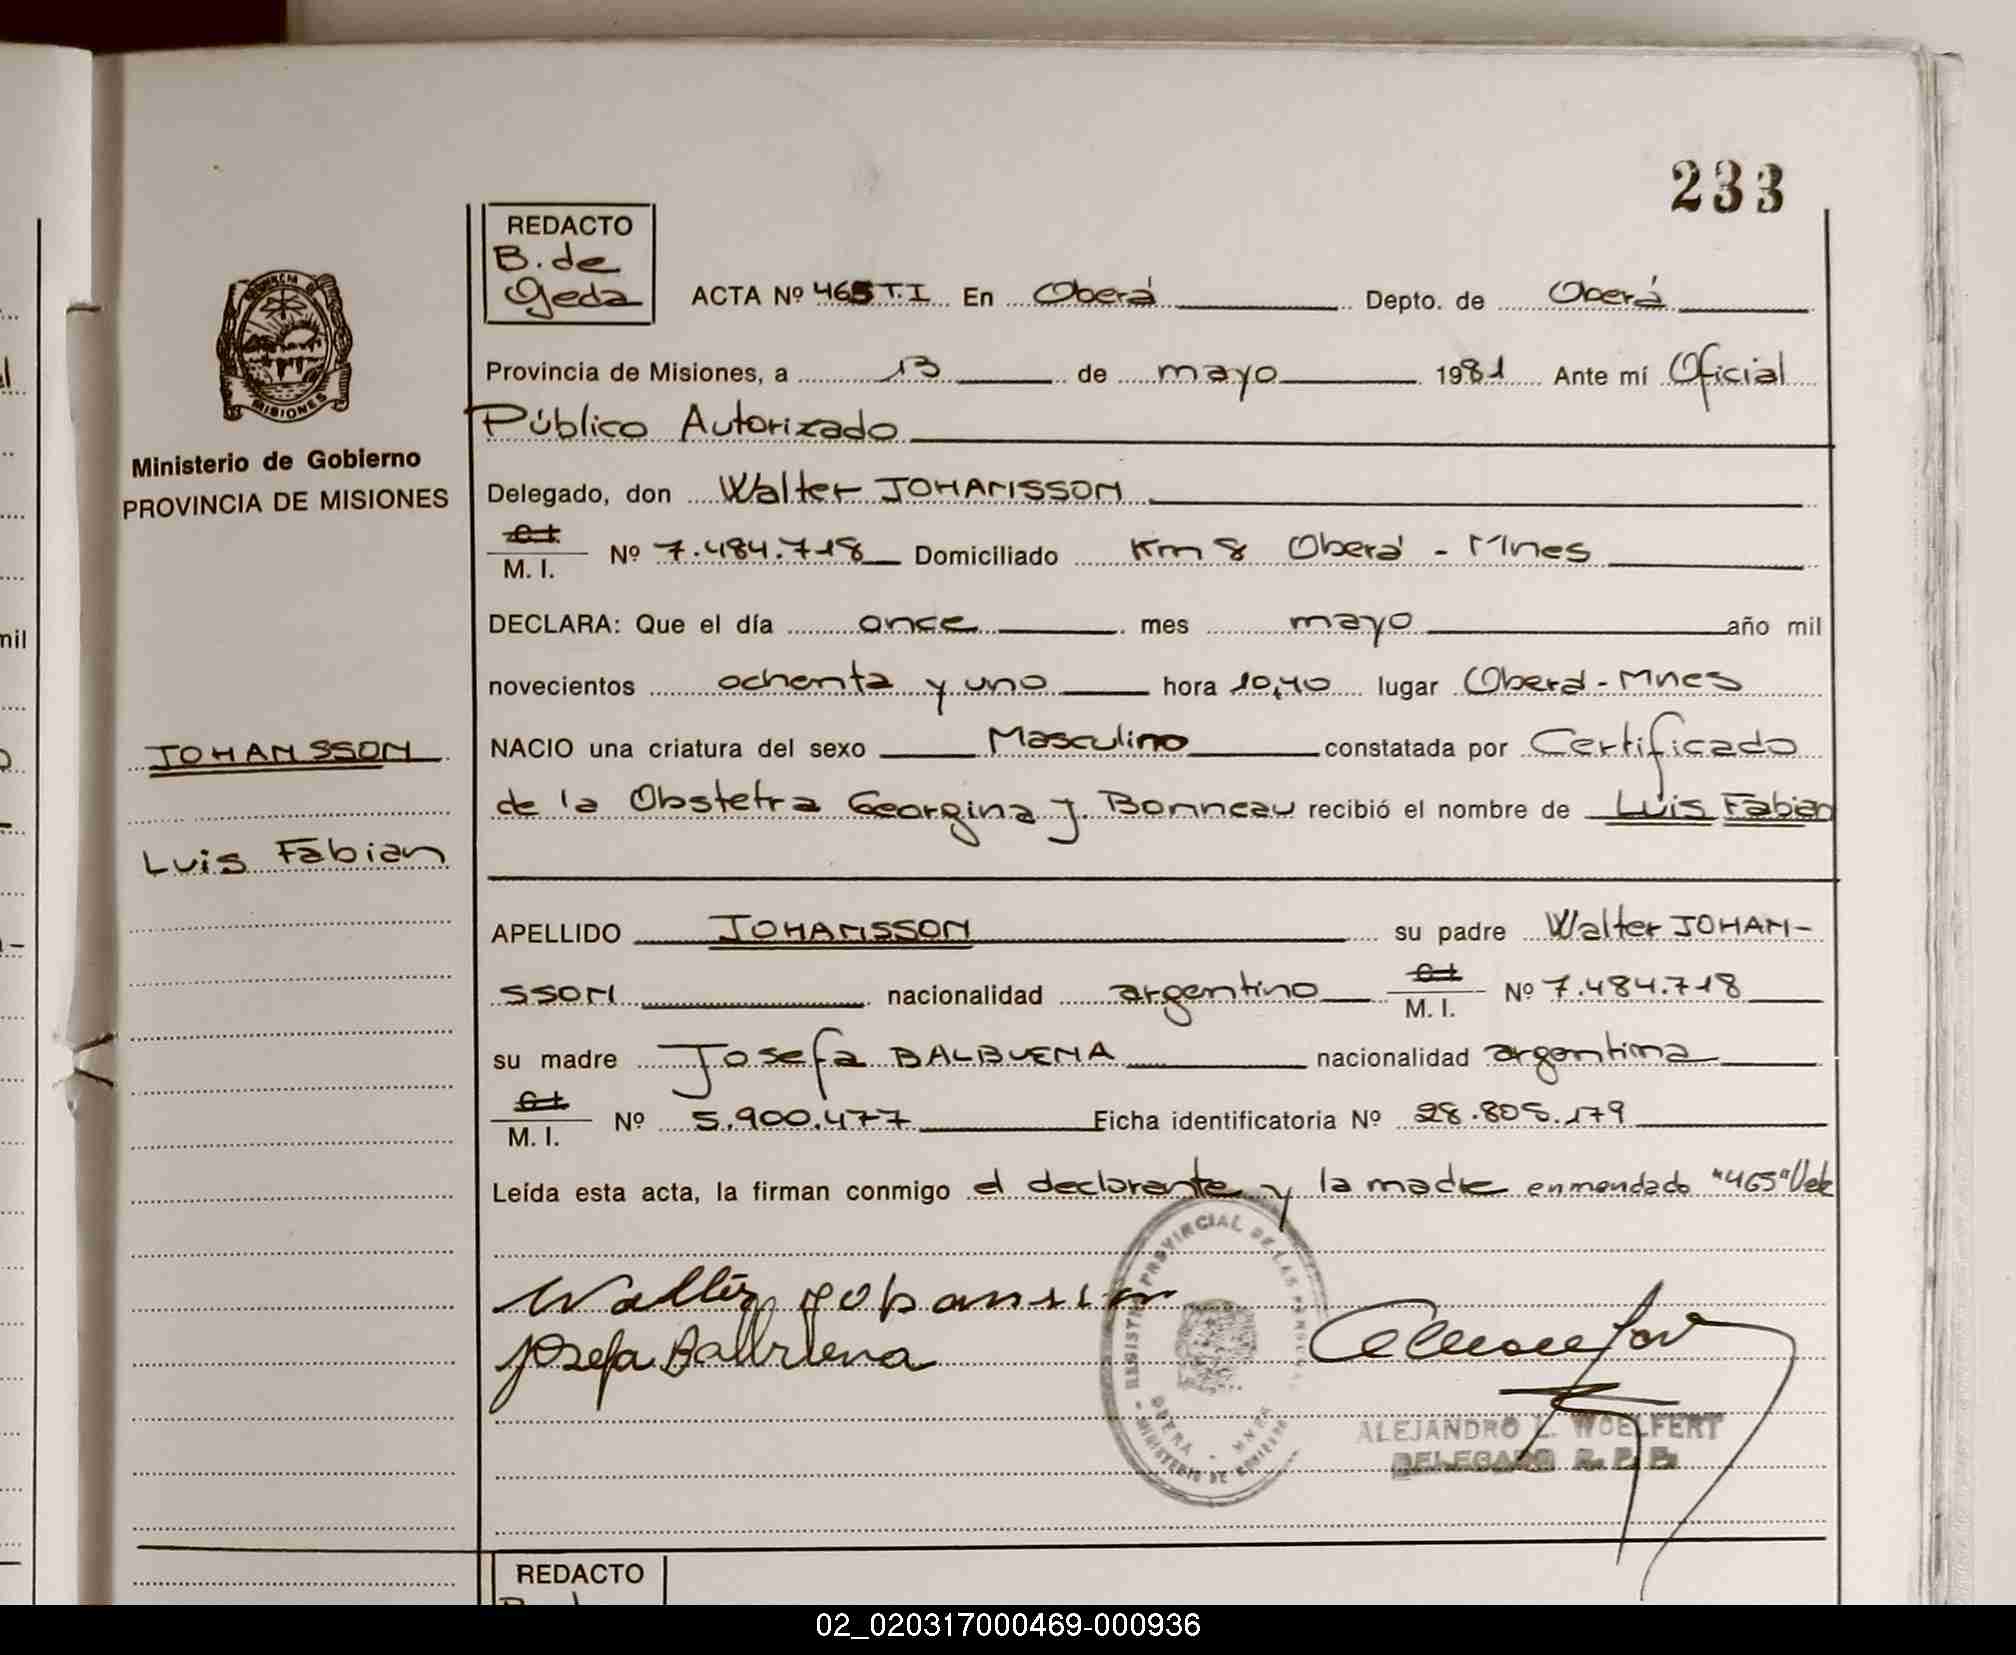 233
REDACTO
B. de
Ojeda
ACTA Nº 465 T.I En Oberá Depto. de Oberá
Provincia de Misiones, a 13 de mayo 1981 Ante mí Oficial
Público Autorizado
Delegado, don Walter JOHANSSON
C.I.
M. I. Nº 7.484.718 Domiciliado Km 8 Oberá - Mnes
DECLARA: Que el día once mes mayo año mil
novecientos ochenta y uno hora 10,40 lugar Oberá - Mnes
NACIO una criatura del sexo Masculino constatada por Certificado
de la Obstetra Georgina J. Bonneau recibió el nombre de Luis Fabian
APELLIDO JOHANSSON su padre Walter JOHAN-
SSON nacionalidad argentino C.I.
M. I. Nº 7.484.718
su madre Josefa BALBUENA nacionalidad argentina
C.I.
M. I. Nº 5.900.477 Ficha identificatoria Nº 28.805.179
Leída esta acta, la firman conmigo el declarante y la madre enmendado "465" Vale
Walter Johansson
Josefa Balbuena
REGISTRO PROVINCIAL DE LAS PERSONAS
OBERA - MNES
MINISTERIO DE GOBIERNO
ALEJANDRO L. WOELFERT
DELEGADO R. P. P.
PROVINCIA DE
MISIONES
Ministerio de Gobierno
PROVINCIA DE MISIONES
JOHANSSON
Luis Fabian
REDACTO
mil
02_020317000469-000936